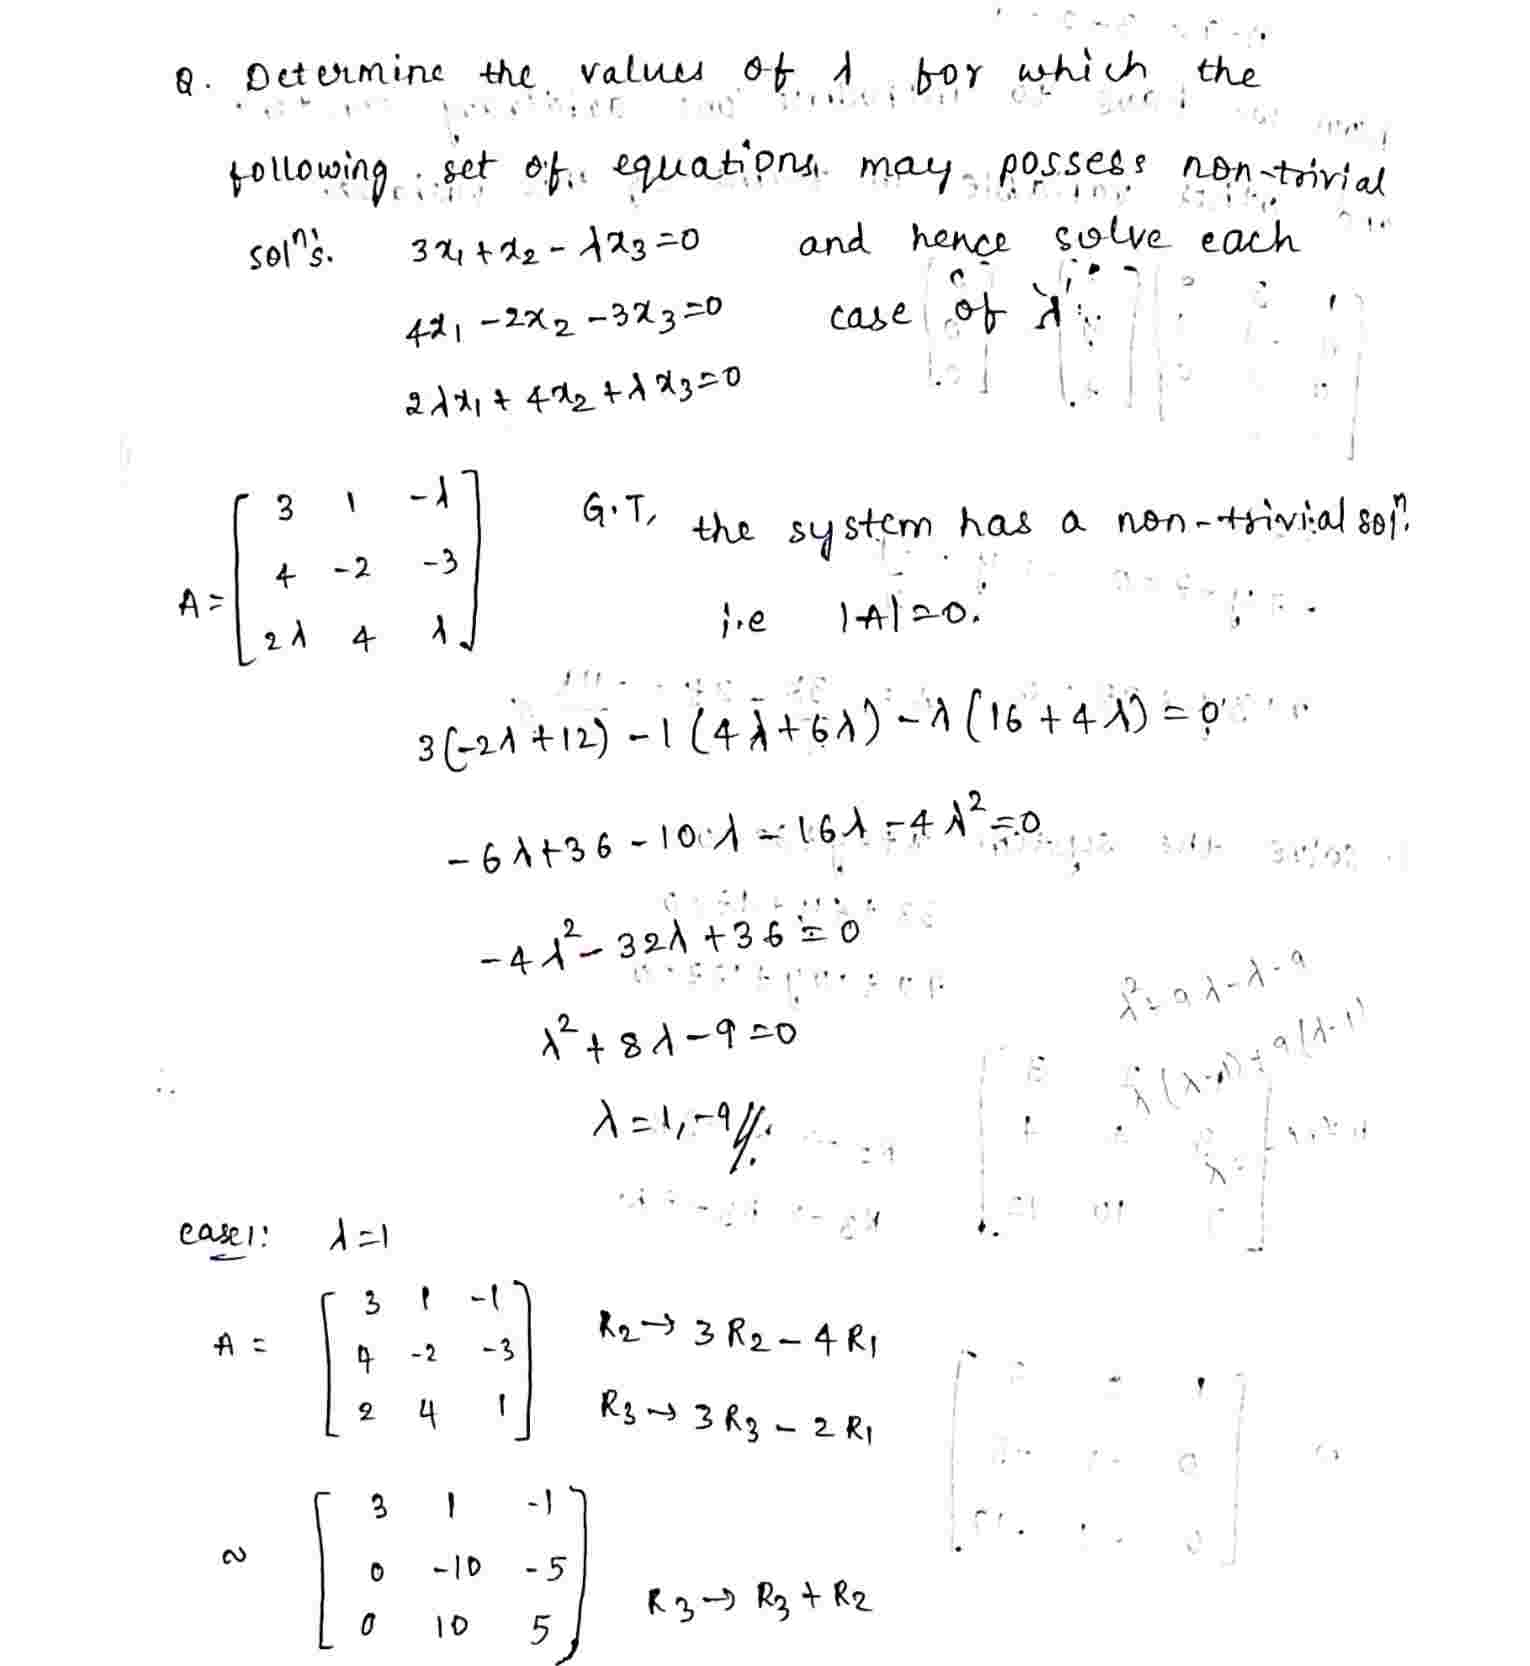 Q. Determine the values of λ for which the
following set of equations may possess non-trivial
solⁿs. 3x₁ + x₂ - λx₃ = 0 and hence solve each
4x₁ - 2x₂ - 3x₃ = 0 case of λ.
2λx₁ + 4x₂ + λx₃ = 0
A = [ 3 1 -λ
4 -2 -3
2λ 4 λ ]
G.T, the system has a non-trivial solⁿ.
i.e |A| = 0.
3(-2λ + 12) - 1(4λ + 6λ) - λ(16 + 4λ) = 0
-6λ + 36 - 10λ - 16λ - 4λ² = 0
-4λ² - 32λ + 36 = 0
λ² + 8λ - 9 = 0
λ = 1, -9 //.
λ² + 9λ - λ - 9
λ(λ-1) + 9(λ-1)
case1: λ = 1
A = [ 3 1 -1
4 -2 -3
2 4 1 ]
R₂ → 3R₂ - 4R₁
R₃ → 3R₃ - 2R₁
~ [ 3 1 -1
0 -10 -5
0 10 5 ]
R₃ → R₃ + R₂